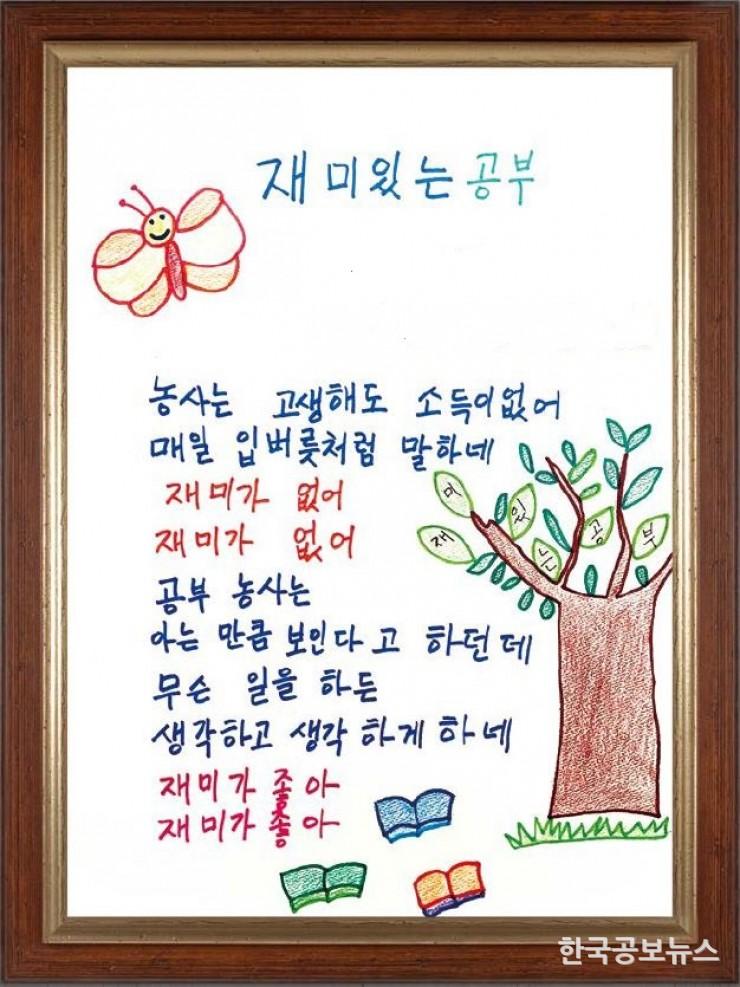 재미있는 공부
농사는 고생해도 소득이없어
매일 입버릇처럼 말하네
재미가 없어
재미가 없어
공부 농사는
아는 만큼 보인다고 하던데
무슨 일을 하든
생각하고 생각하게 하네
재미가 좋아
재미가 좋아
재미있는공부
한국공보뉴스